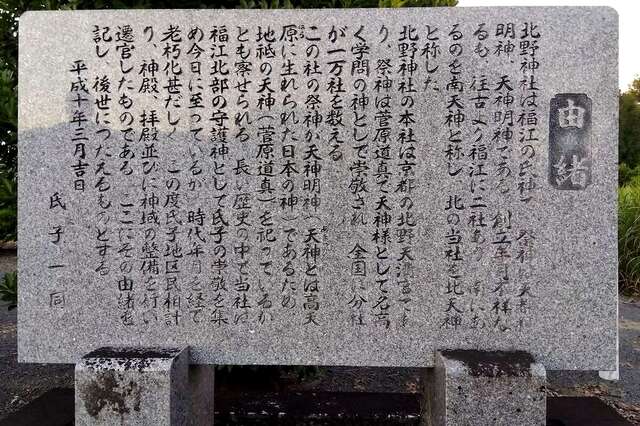 由緒
北野神社は福江の氏神で祭神は天都
明神、天神明神である 創立年月不祥な
るも、往古より福江に二社あり、南にあ
るのを南天神と称し、北の当社を北天神
と称した
北野神社の本社は京都の北野天満宮であ
り、祭神は菅原道真で天神様として名高
く学問の神として崇敬され 全国に分社
が一万社を数える
この社の祭神が天神明神(天神とは高天
原に生れられた日本の神)であるため
地祇の天神(菅原道真)を祀っているか
とも察せられる 長い歴史の中で当社は
福江北部の守護神として氏子の崇敬を集
め今日に至っているが 時代年月を経て
老朽化甚だしく この度氏子地区民相計
り、神殿、拝殿並びに神域の整備を行い
遷宮したものである ここにその由緒を
記し、後世につたえるものとする
平成十年三月吉日
氏子一同